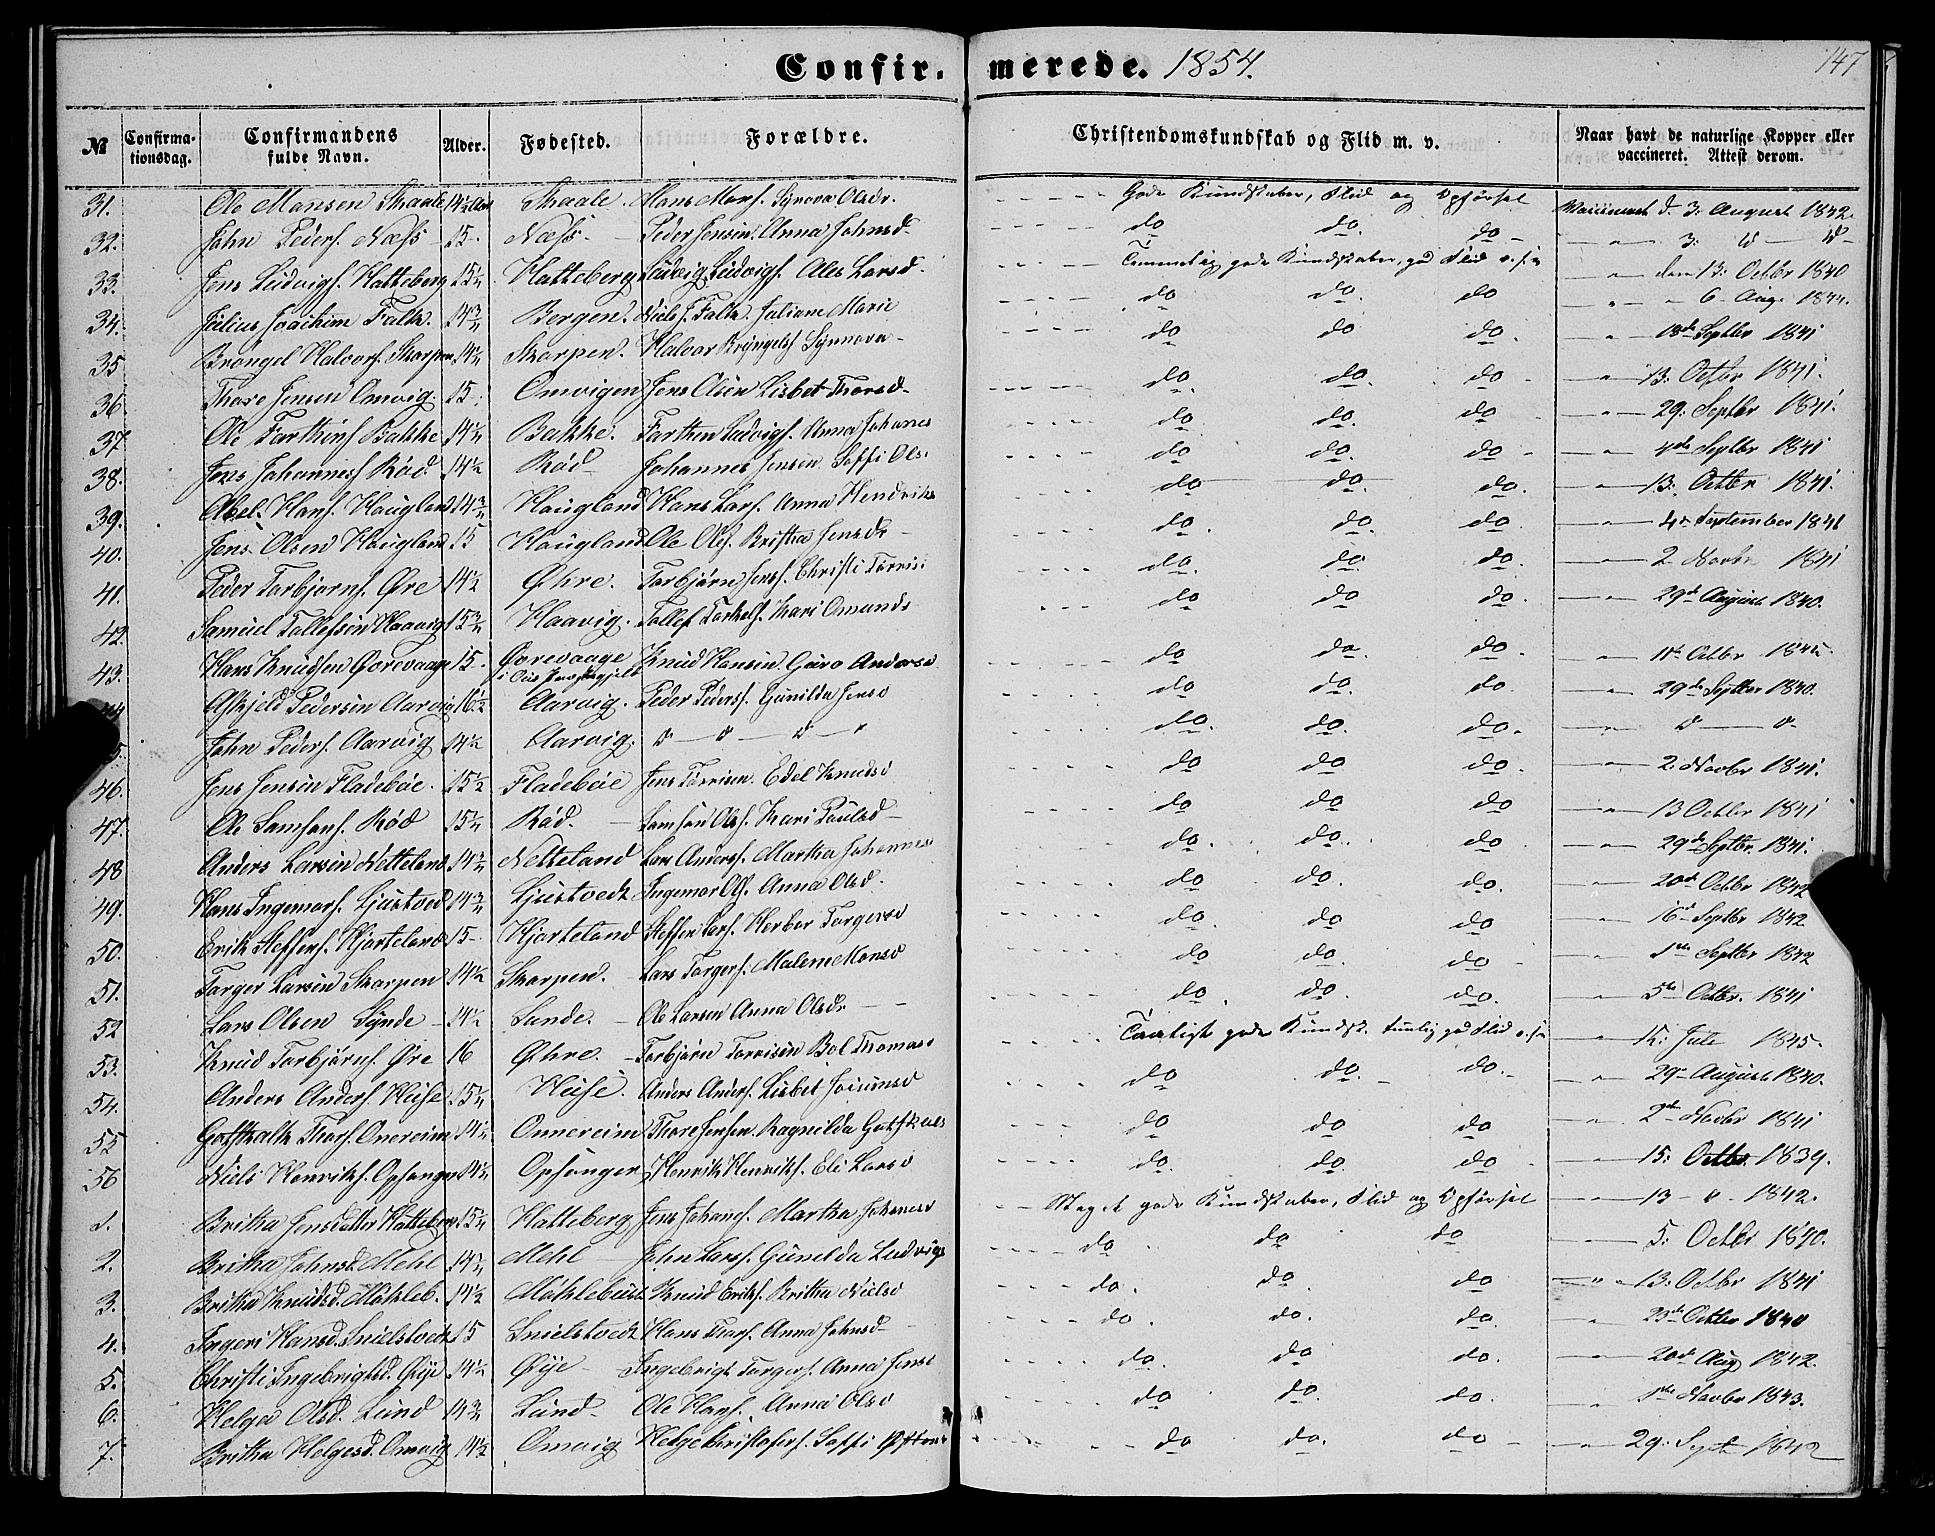 Confirmerede. 1854.
147
№ Confirmationsdag. Confirmandens fulde Navn. Alder. Fødested. Forældre. Christendomskundskab og Flid m. v. Naar havt de naturlige Kopper eller vaccineret. Attest derom.
31. Ole Monsen Skaale 14½ Skaale. Mons Monss. Synova Olsdr. Gode Kundskaber, Flid og Opførsel Vaccineret d. 3: August 1842.
32. John Peders. Næss 15. Næss. Peder Jensen. Anna Johnsd. do do. do 3:
33. Jens Ludvigs. Hatteberg 15¼ Hatteberg Ludvig Ludvigs. Ales Larsd. Temmelig gode Kundskaber, god Flid den 13: Octbr 1840
34. Julius Joachim Falk. 14¾ Bergen. Niels J. Falk. Juliane Marie do do. do 6 Aug. 1844.
35 Brøngel Halvors. Skorpen 14½ Skorpen. Halvor Bryngels. Synnova do do do. 18de Septbr 1841
36 Thore Jensen Omvig. 15. Omvigen Jens Olsen Lisbet Thorsd. do do. do 13: Octbr 1841.
37 Ole Farthins Bakke 14¼ Bakke. Farthen Ludvigs. Anna Johanes do do. do 29: Septbr 1841.
38. Jens Johanness. Rød. 14½ Rød Johannes Jensen Soffi Ols. do do. do 4de Septbr 1841
39. Abel Hans. Haugland 14¾ Haugland Hans Lars. Anna Hendriks do do. do. 13: Octbr 1841.
40. Jens Olsen Haugland 15 Haugland Ole Ols. Britha Jensdr do. do. do. 4de September 1841
41. Peder Torbjørns. Øre 14½ Øhre. Torbjørn Jenss. Christi Torris: do. do do. 2 Novbr 1841
42. Samuel Tollefsen Haavig 15¾ Haavig. Tollef Torkels. Kari Omunds do do do. 29d August 1840.
43. Hans Knudsen Øvrevaage 15. Øvrevaage Knud Hansen Guro Anders. do do. do. 11te Octbr 1842.
Askjeld Pedersen Aarvig 16½ Aarvig. Peder Peders. Gunilda Jensd do do. do. 29de Septbr 1840.
John Peders. Aarvig 14½ Aarvig. do. do do.
46. Jens Jensen Fladebøe. 15½ Fladebøe Jens Torrisen. Edel Knudsd do do do. 2. Novbr 1841.
47. Ole Samsons. Rød 15¼ Rød. Samson Ols. Kari Poulsd do do do 13 Octbr 1841
48 Anders Larsen Netteland 14¾ Netteland Lars Anders. Martha Johannes do. do. do. 29d Septbr. 1841.
49. Hans Ingemars. Ljustvedt 14¾ Ljustvedt Ingemar Ols. Anna Olsd. do do. do. 20d Octbr 1842
50. Erik Steffens. Hjorteland 15 Hjorteland Steffen Lars. Herber Torgersd do. do do 16d Septbr 1842
51. Torger Larsen Skorpen 14½ Skorpen. Lars Torgers. Malene Monsd do do. do Septbr 1842
52 Lars Olsen Synde 14½ Sunde. Ole Larsen Anna Olsdr do. do. do. 5te Octbr. 1841
53. Knud Torbjørns. Øre 16 Øhre. Torbjørn Torrisen Bol Thomasd gode Kundsk. god Flid 12: Juli 1845.
54. Anders Anders. Huse 15¼ Huse. Anders Anders. Lisbet do do. do. 29de August 1840.
55 Gotskalk Thors. Onereim 14½ Onnereim Thore Jensen. Ragnilda Gotskals do do do 2den Novbr 1841
56 Niels Henriks. Opsanger 14½ Opsanger Henrik Henriks. Eli Larsd do. do do 15: Octbr. 1839.
1. Britha Jensdatter Hatteberg 15¼ Hatteberg Jens Johans. Martha Johanesd Meget gode Kundskaber, Flid og Opførsel 13 1842.
2. Britha Johnsd. Mehl 14¾ Mehl John Lars. Gunilda Ludvigs do do do 5: Octbr 1840.
3. Britha Knudsd. Møkleb. 14½ Møklebust Knud Eriks. Britha Nielsd do. do do 13: Octbr 1841
4. Ingeri Hansd. Snielstvedt 15 Snielstvedt Hans Thors. Anna Johnsd do. do. do. 23de Octbr 1840
5. Christi Ingebrigtsd. Øye 14½ Øye Ingebrigt Torgers. Anna Jensd do. do do. 20d Aug 1842.
6. Helga Olsd. Lund 14¾ Lund Ole Hans. Anna Olsd do do. do. Novbr 1843.
7. Britha Helgesd. Omvig 14½ Omvig Helge Christofers. Soffi do do. do 29: Sept 1842